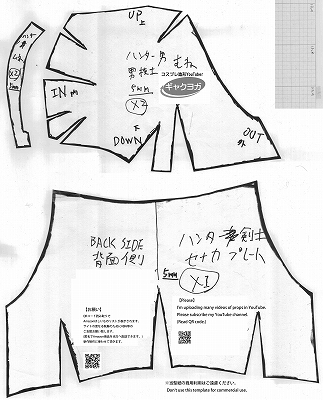 UP上
ハンター男
男剣士 むね
5mm
X2
コスプレ造形YouTuber
ギャクヨガ
IN内
DOWN下
OUT外
X2
5mm
BACK SIDE
背面側
ハンター男剣士
セナカ プレート
5mm
X1
【お願い】
【Please】
I'm uploading many videos of props in YouTube.
Please subscribe my YouTube channel.
(Read QR code.)
※当型紙の商用利用はご遠慮ください。
Don't use this template for commercial use.